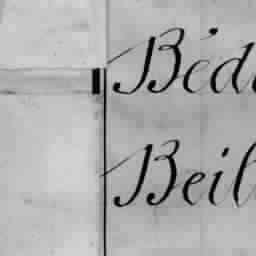 Béd
Beil